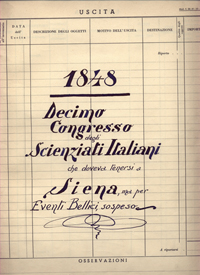 USCITA
DATA
dell'
Uscita
DESCRIZIONE DEGLI OGGETTI
MOTIVO DELL'USCITA
DESTINAZIONE
Riporto
1848
Decimo
Congresso
degli
Scienziati Italiani
che doveva tenersi a
Siena, ma per
Eventi Bellici sospeso
A riportarsi
OSSERVAZIONI